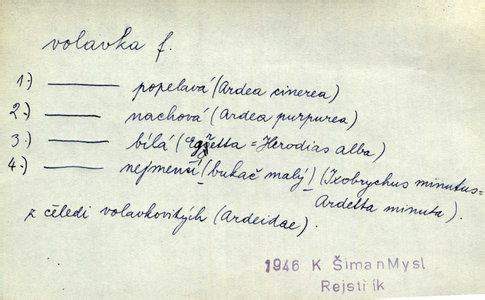 volavka f.
1.) ——— popelavá (Ardea cinerea)
2.) ——— nachová (Ardea purpurea)
3.) ——— bílá (Egretta = Herodias alba)
4.) ——— nejmenší (bukač malý) (Ixobrychus minutus=
Ardetta minuta).
z čeledi volavkovitých (Ardeidae).
1946 K ŠimanMysl
Rejstřík